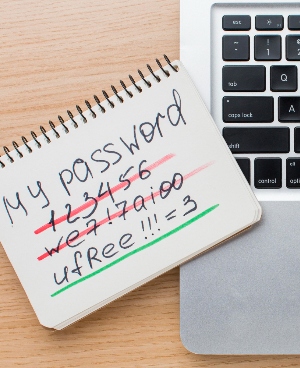 My password
123456
we7!7aioo
ufRee!!!=3
esc
~ ! 1 2
tab Q
caps lock A
shift
control opti